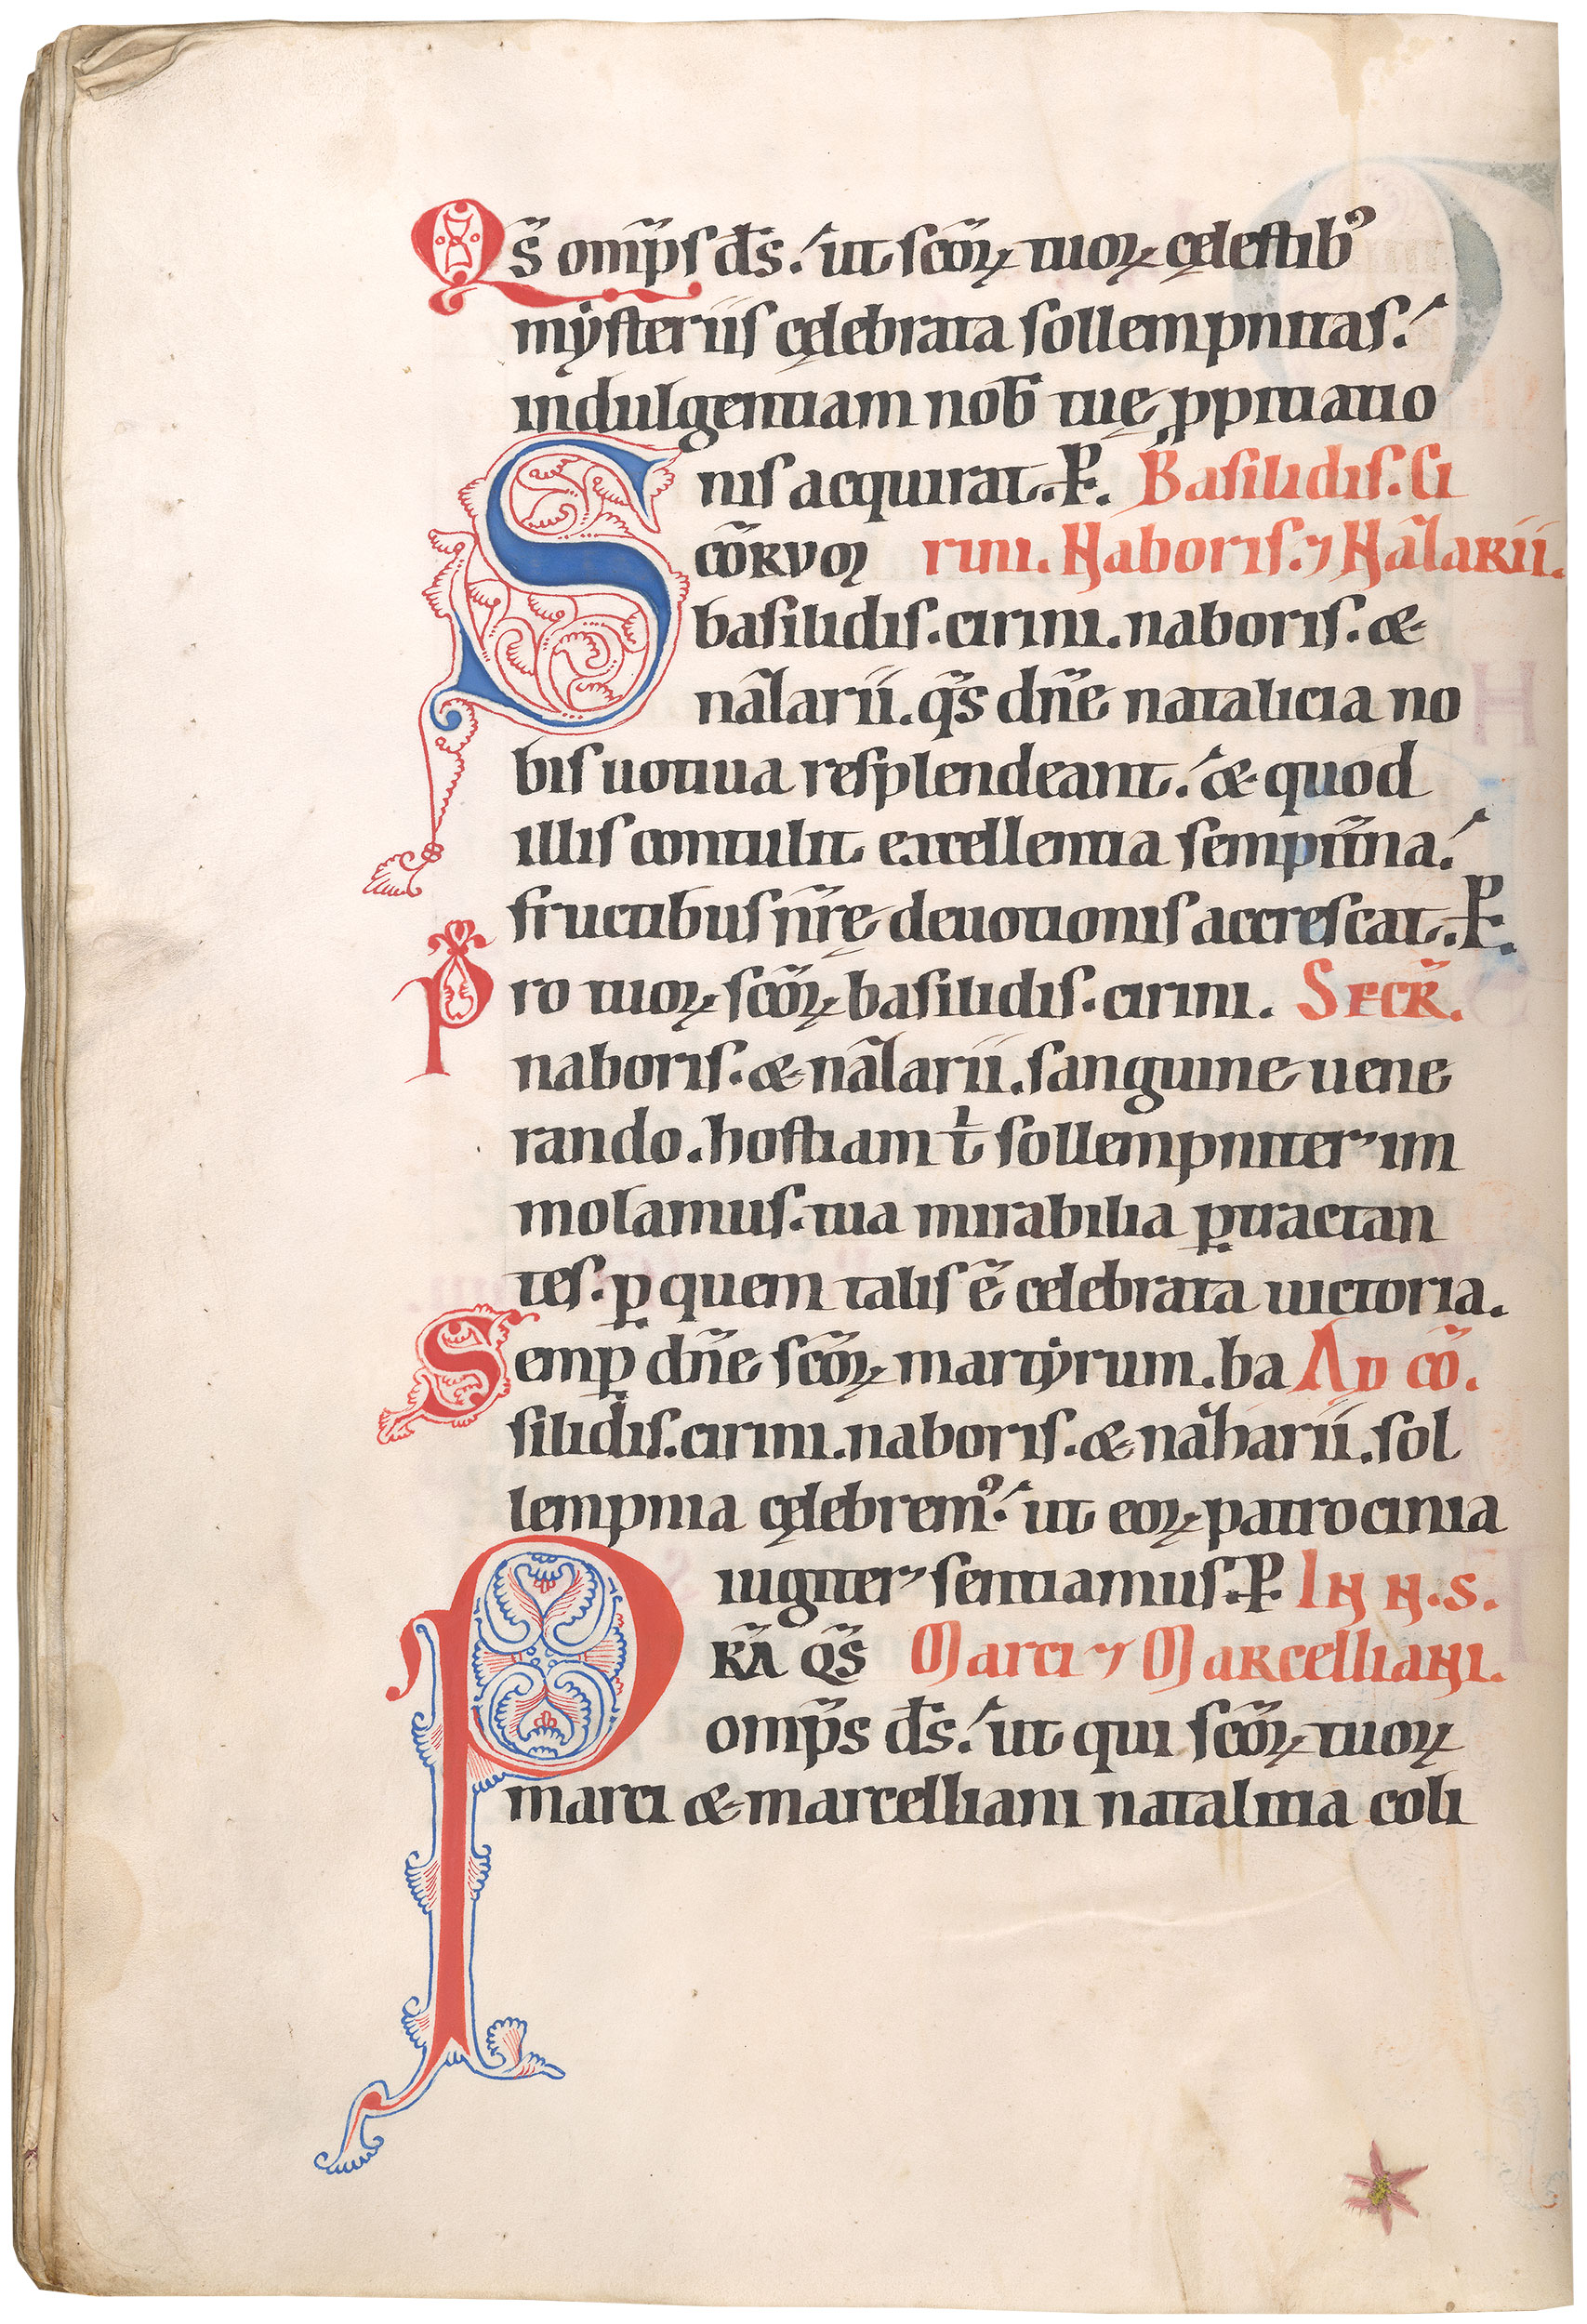 Qs̄ om̄ps ds̄. ut scōꝝ tuoꝝ cęlestibꝰ
mẏsteriis cęlebrata sollempnitas.
indulgentiam nob̄ tuę ꝓpitiatio
nis acquirat. P̄. Basilidis. Ci
SCŌRVꝜ rini. Naboris. ⁊ Nālarii.
basilidis. cirini. naboris. &
nālarii. qs̄ dn̄e natalicia no
bis uotiua resplendeant. & quod
illis contulit excellentia sempit̄na.
fructibus nr̄ę deuotionis accrescat. P̄.
Pro tuoꝝ scōꝝ basilidis. cirini. SECR̄.
naboris. & nālarii. sanguine uene
rando. hostiam t̄ sollempniter im
molamus. tua mirabilia ꝑtractan
tes. ꝑ quem talis ē celebrata uictoria.
Semꝑ dn̄e scōꝝ martẏrum. ba AD CŌ.
silidis. cirini. naboris. & nāharii. sol
lempnia cęlebremꝰ. ut eoꝝ patrocinia
iugiter sentiamus. P̄. IN N. S.
PR̄A QS̄ Marci ⁊ Marcelliani.
om̄ps ds̄. ut qui scōꝝ tuoꝝ
marci & marcelliani natalitia coli